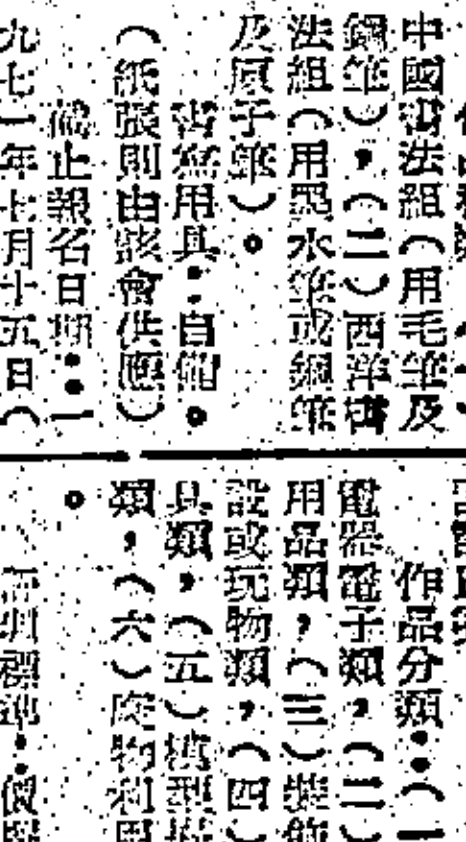 中國書法組（用毛筆及
鋼筆），（二）西洋書
法組（用墨水筆或鋼筆
及原子筆）。
書寫用具：自備。
（紙張則由該會供應）
截止報名日期：一
九七一年七月十五日（
作品分類：（一
電器電子類，（二）
用品類，（三）裝飾
設或玩物類，（四）
具類，（五）模型
類，（六）廢物利用
。
評判標準：價